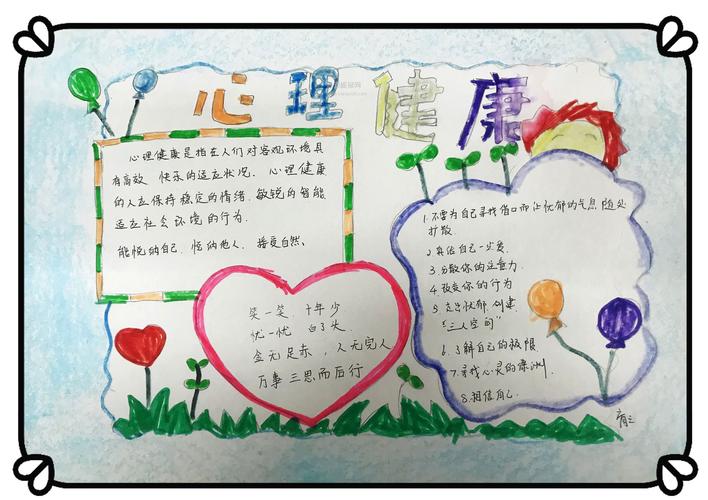 心理健康
心理健康是指在人们对客观环境具
有高效 快乐的适应状况. 心理健康
的人应保持稳定的情绪. 敏锐的智能
适应社会环境的行为.
能悦纳自己, 悦纳他人, 接受自然.
笑一笑 十年少
忧一忧 白了头.
金无足赤, 人无完人
万事三思而后行
1.不要为自己寻找借口而让忧郁的气息随处
扩散.
2.真信自己一定变.
3.分散你的注意力.
4.改变你的行为
5.走出忧郁, 创建
"三人空间"
6.了解自己的极限
7.寻找心灵的绿洲.
8.相信自己.